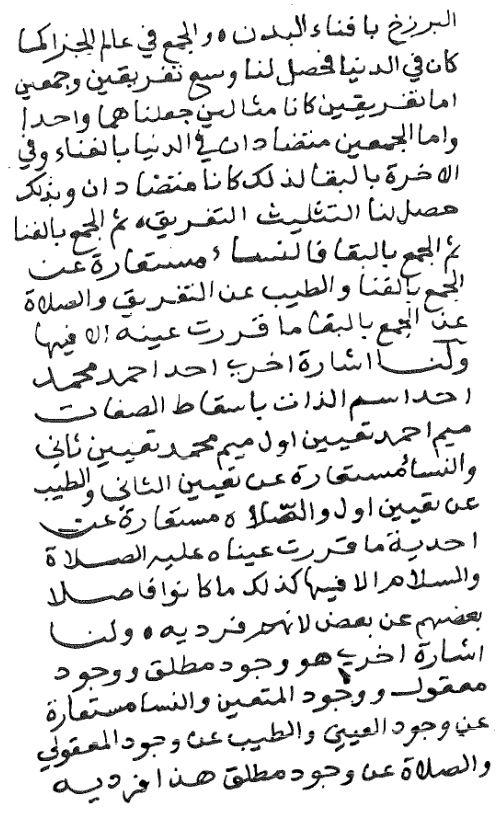 البرزخ بافناء البدن ه والجمع في عالم الجزا كما
كان في الدنيا فحصل لنا وسع تفريقين وجمعين
اما تفريقين كانا مثالين جعلناهما واحدا
واما الجمعين متضادان في الدنيا بالفناء وفي
الاخرة بالبقا لذلك كانا متضادان وبذلك
حصل لنا التثليث التفريق ه ثم الجمع بالفنا
ثم الجمع بالبقا فالنساء مستعارة عن
الجمع بالفنا والطيب عن التفريق والصلاة
عن الجمع بالبقا ما قررت عينه الا فيها
ولنا اشارة اخرى احد احمد محمد
احد اسم الذات باسقاط الصفات
ميم احمد تعيين اول ميم محمد تعيين ثاني
والنساء مستعارة عن تعيين الثاني والطيب
عن تعيين اول والصلاة مستعارة عن
احدية ما قررت عيناه عليه الصلاة
والسلام الا فيها كذلك ما كانوا فاصلا
بعضهم عن بعض لانهم فرديه ه ولنا
اشارة اخرى هو وجود مطلق ووجود
معقول ووجود المتعين والنسا مستعارة
عن وجود العيني والطيب عن وجود المعقولي
والصلاة عن وجود مطلق هذا فرديه